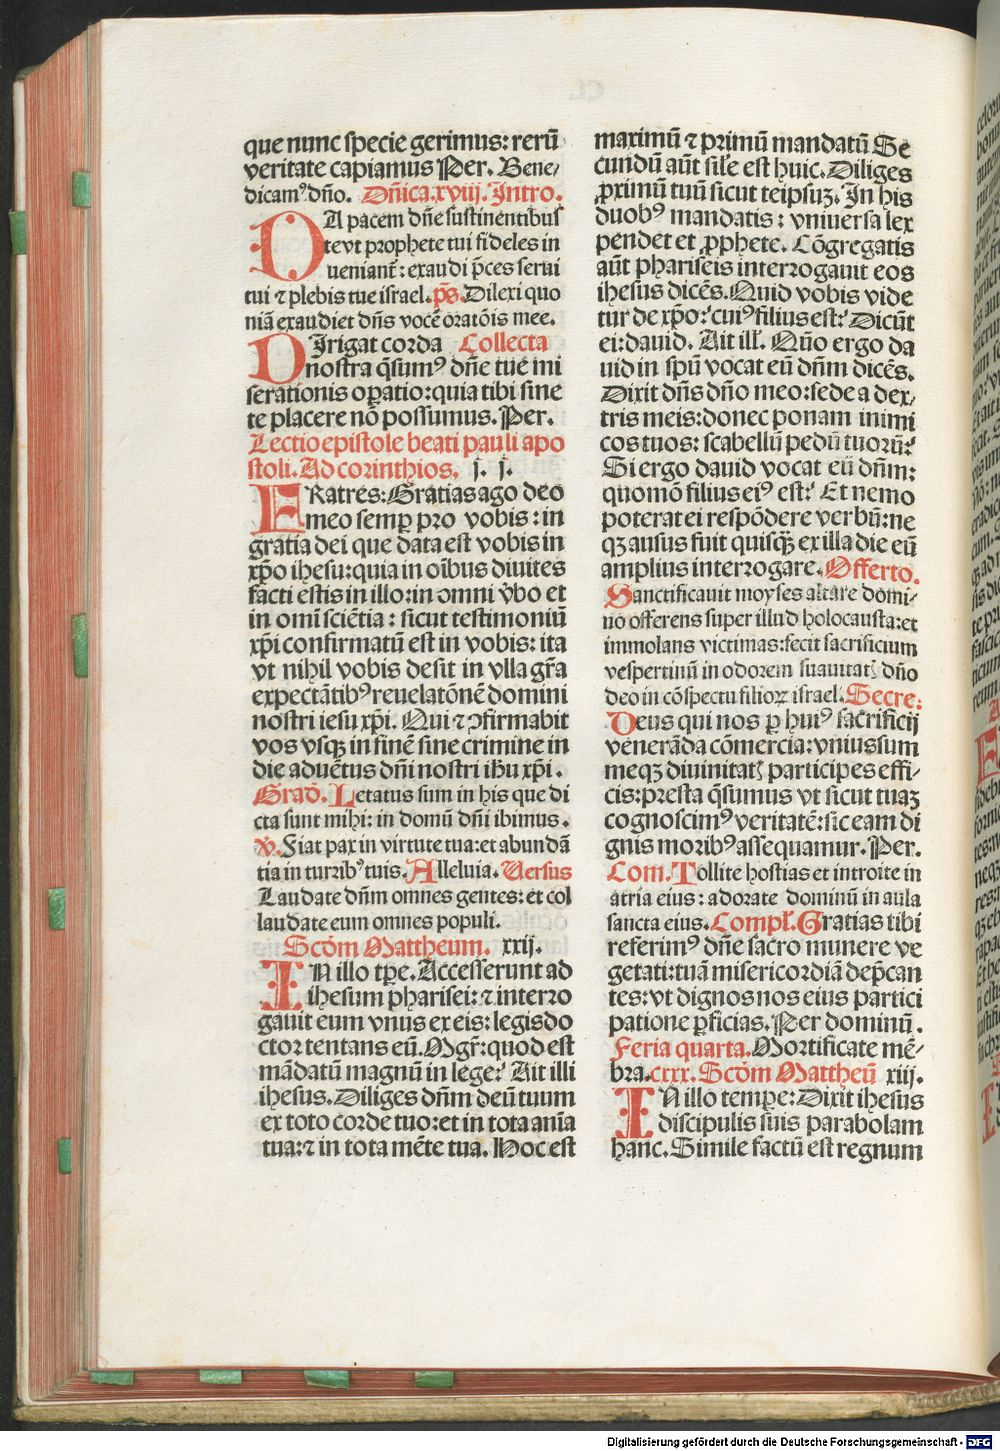 que nunc specie gerimus: rerū
veritate capiamus Per. Bene/
dicamꝰ dño. Dñica.xviij. Intro.
DA pacem dñe sustinentibus
te vt prophete tui fideles in
ueniant̄: exaudi p̄ces serui
tui ⁊ plebis tue israel. p̄s. Dilexi quo
niā exaudiet dñs vocē oratōis mee.
DIrigat corda Collecta
nostra q̄sumꝰ dñe tue mi
serationis oꝑatio: quia tibi sine
te placere nō possumus. Per.
Lectio epistole beati pauli apo
stoli. Ad corinthios. j. j.
FRatres: Gratias ago deo
meo semꝑ pro vobis: in
gratia dei que data est vobis in
xp̄o ihesu: quia in oībus diuites
facti estis in illo: in omni v̄bo et
in omī sciētia: sicut testimoniū
xp̄i confirmatū est in vobis: ita
vt nihil vobis desit in vlla gr̄a
expectātibꝰ reuelatōnē domini
nostri iesu xp̄i. Qui ⁊ ↄfirmabit
vos vsqꝫ in finē sine crimine in
die aduētus dñi nostri ihu xp̄i.
Grad̄. Letatus sum in his que di
cta sunt mihi: in domū dñi ibimus.
℣. Fiat pax in virtute tua: et abundā
tia in turribꝰ tuis. Alleluia. Uersus
Laudate dñm omnes gentes: et col
laudate eum omnes populi.
Scd̄m Mattheum. xxij.
IN illo tꝑe. Accesserunt ad
ihesum pharisei: ⁊ interro
gauit eum vnus ex eis: legis do
ctor tentans eū. Mgr̄: quod est
mādatū magnū in lege? Ait illi
ihesus. Diliges dñm deū tuum
ex toto corde tuo: et in tota aīa
tua: ⁊ in tota mēte tua. Hoc est
maximū ⁊ primū mandatū Se
cundū aūt sil̄e est huic. Diliges
ꝓximū tuū sicut teipsuꝫ. In his
duobꝰ mandatis: vniuersa lex
pendet et ꝓphete. Cōgregatis
aūt phariseis interrogauit eos
ihesus dicēs. Quid vobis vide
tur de xp̄o? cuiꝰ filius est? Dicūt
ei: dauid. Ait ill̄. Quō ergo da
uid in sp̄u vocat eū dñm dicēs.
Dixit dñs dño meo: sede a dex/
tris meis: donec ponam inimi
cos tuos: scabellū pedū tuorū?
Si ergo dauid vocat eū dñm:
quomō filius eiꝰ est? Et nemo
poterat ei respōdere verbū: ne
qꝫ ausus fuit quisqꝫ̄ ex illa die eū
amplius interrogare. Offerto.
Sanctificauit moyses altare domi/
no offerens super illud holocausta: et
immolans victimas: fecit sacrificium
vespertinū in odorem suauitatꝭ dño
deo in cōspectu filioꝝ israel. Secre:
Deus qui nos ꝑ huiꝰ sacrificij
venerāda cōmercia: vnius sum
meqꝫ diuinitatꝭ participes effi
cis: presta q̄sumus vt sicut tuaꝫ
cognoscimꝰ veritatē: sic eam di
gnis moribꝰ assequamur. Per.
Com. Tollite hostias et introite in
atria eius: adorate dominū in aula
sancta eius. Compl̄. Gratias tibi
referimꝰ dñe sacro munere ve
getati: tuā misericordiā dep̄can
tes: vt dignos nos eius partici
patione ꝑficias. Per dominū.
Feria quarta. Mortificate mē/
bra. cxxx. Scd̄m Mattheū xiij.
IN illo tempe: Dixit ihesus
discipulis suis parabolam
hanc. Simile factū est regnum
Digitalisierung gefördert durch die Deutsche Forschungsgemeinschaft - DFG